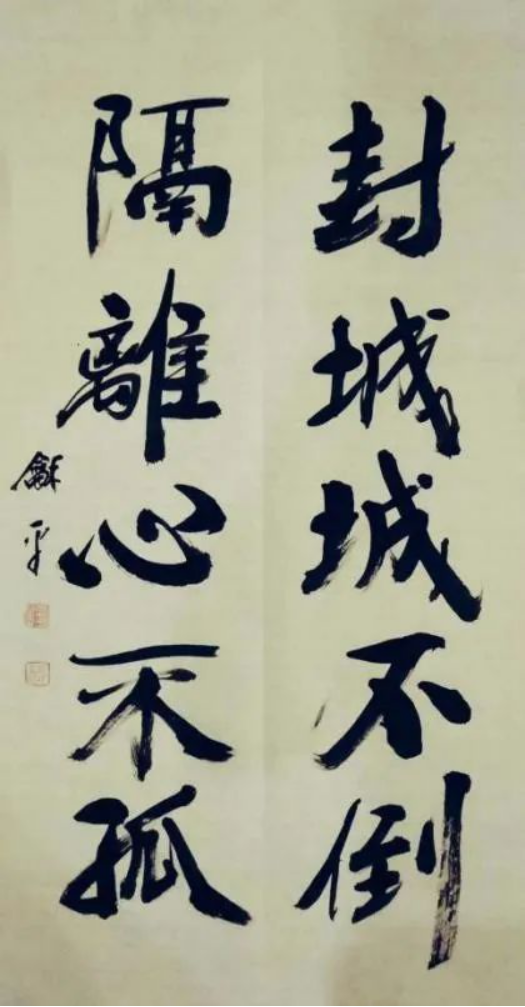 封城城不倒
隔離心不孤
龢平